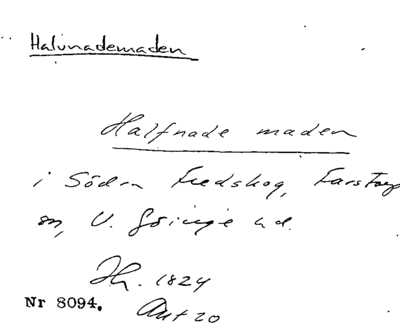 Halvnademaden
Halfnade maden
i Södra Fredskog, Farstorp
sn, V. Göinge hd.
Jh. 1824
Nr 8094. Akt 20